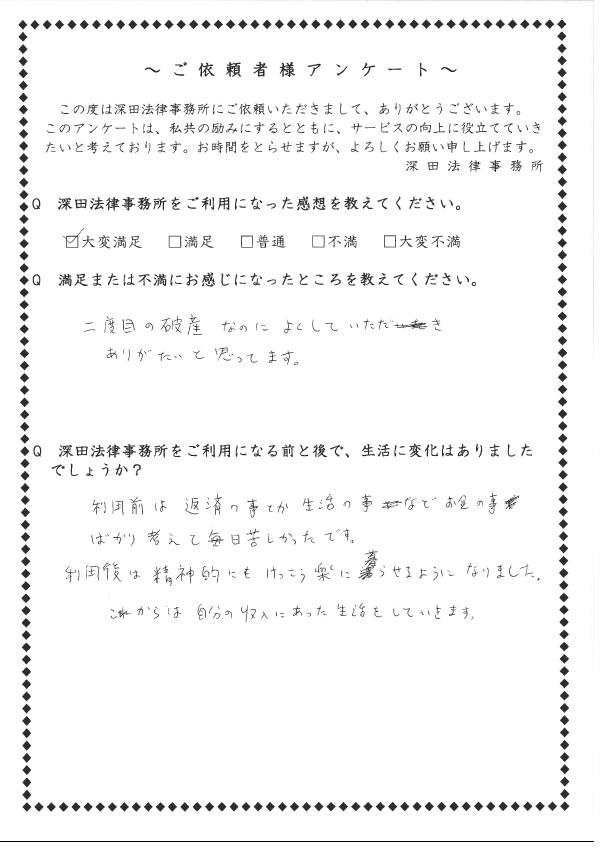 ～ご依頼者様アンケート～
この度は深田法律事務所にご依頼いただきまして、ありがとうございます。
このアンケートは、私共の励みにするとともに、サービスの向上に役立てていき
たいと考えております。お時間をとらせますが、よろしくお願い申し上げます。
深田法律事務所
Q 深田法律事務所をご利用になった感想を教えてください。
☑大変満足 □満足 □普通 □不満 □大変不満
Q 満足または不満にお感じになったところを教えてください。
二度目の破産 なのに よくして いただき
ありがたいと思ってます。
Q 深田法律事務所をご利用になる前と後で、生活に変化はありました
でしょうか？
利用前は 返済の事とか 生活の事 など お金の事
ばかり 考えて 毎日苦しかったです。
利用後は 精神的にも けっこう 楽に 暮らせるように なりました。
これからは 自分の収入にあった 生活を していきます。